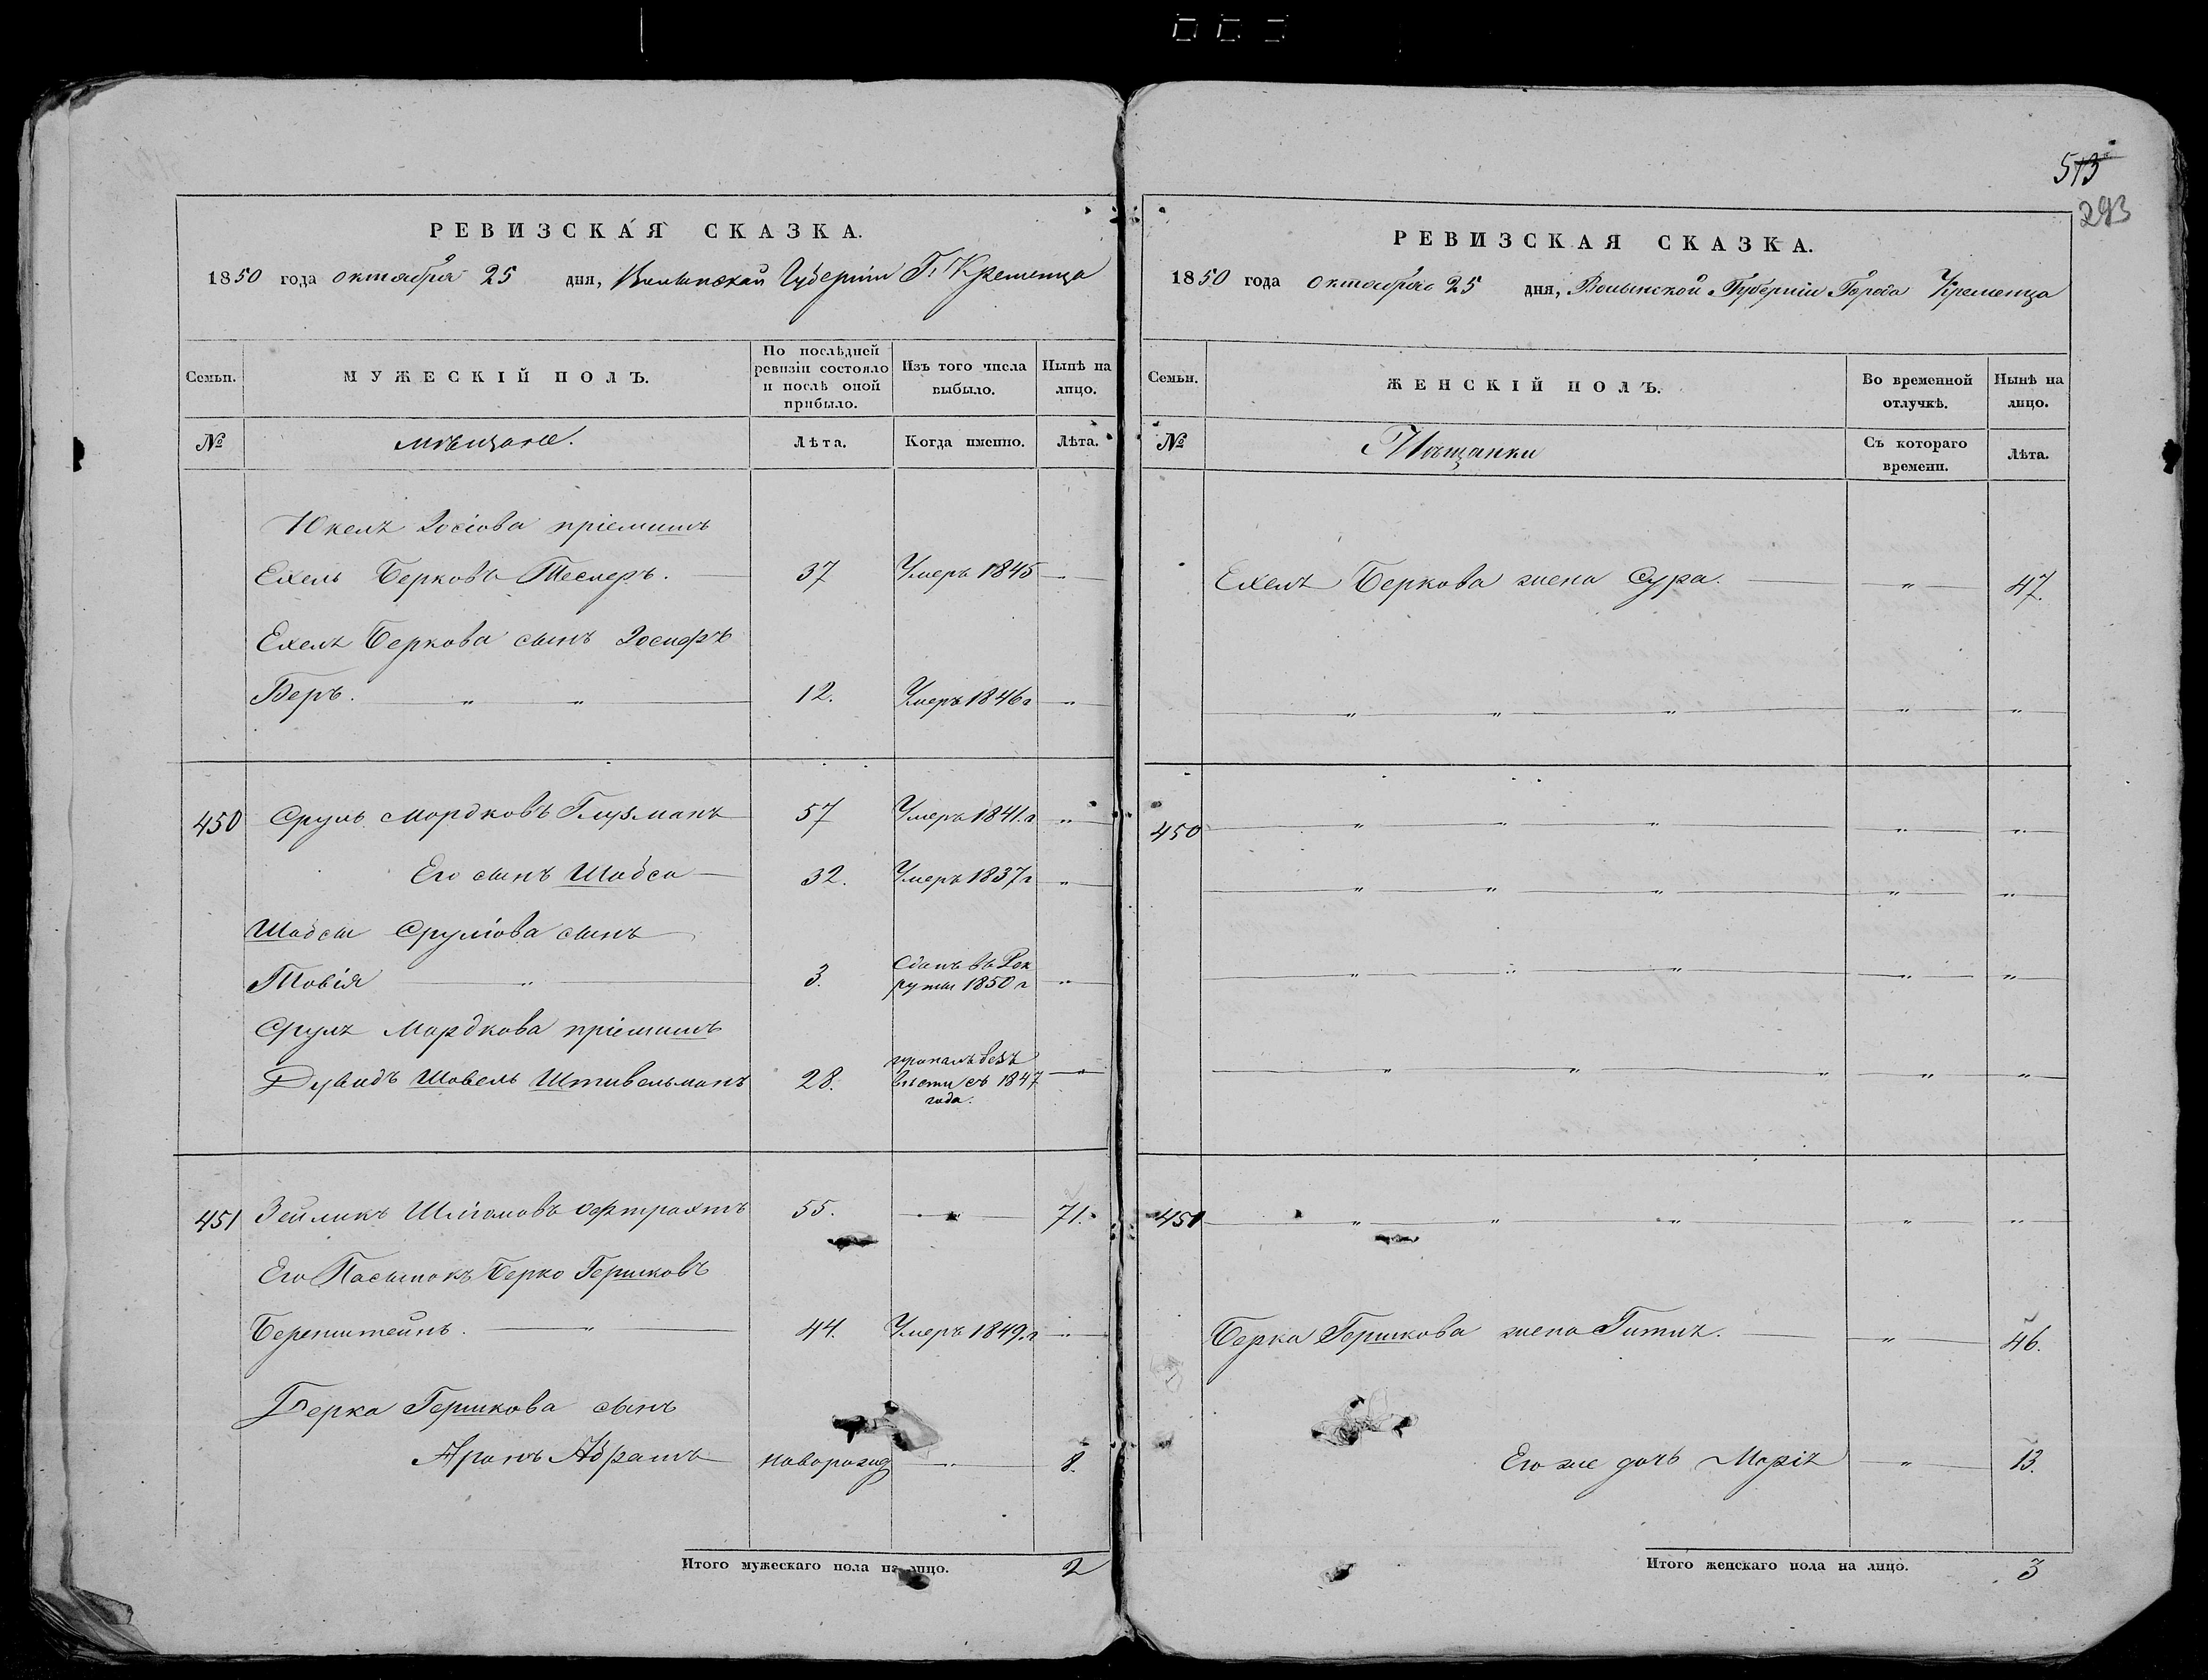 513
293
РЕВИЗСКАЯ СКАЗКА.
1850 года октября 25 дня, Волынской Губерніи Г. Кременца
Семьи.
МУЖЕСКІЙ ПОЛЪ.
По послѣдней ревизіи состояло и послѣ оной прибыло.
Изъ того числа выбыло.
Нынѣ на лицо.
№
мѣщане.
Лѣта.
Когда именно.
Лѣта.
Юкеля Іосіова пріемишъ
Ехель Берковъ Теслеръ. 37 Умеръ 1845
Ехеля Беркова сынъ Іосифъ
Беръ. 12. Умеръ 1846 г
450 Сруль Мордковъ Глузманъ 57 Умеръ 1841. г
Его сынъ Шабса 32. Умеръ 1837 г
Шабсы Срулiова сынъ
Товія 3. Сданъ въ Рек
руты 1850 г
Сруля Мордкова пріемишъ
Дувидъ Шовель Штивельманъ 28. пропалъ безъ
вѣсти съ 1847
года.
451 Зейликъ Шліомовъ Офтрахтъ 55. 71.
Его Пасынокъ Берко Гершковъ
Беренштейнъ. 44. Умеръ 1849. г
Берка Гершкова сынъ
Аронъ Абрамъ новорожд 8.
Итого мужескаго пола на лицо. 2
РЕВИЗСКАЯ СКАЗКА.
1850 года октября 25 дня, Волынской Губерніи Города Кременца
Семьи.
ЖЕНСКІЙ ПОЛЪ.
Во временной отлучкѣ.
Нынѣ на лицо.
№
Мѣщанки
Съ котораго времени.
Лѣта.
Ехеля Беркова жена Сура. 47.
450
451
Берка Гершкова жена Гитля. 46.
Его же дочь Марія 13.
Итого женскаго пола на лицо. 3